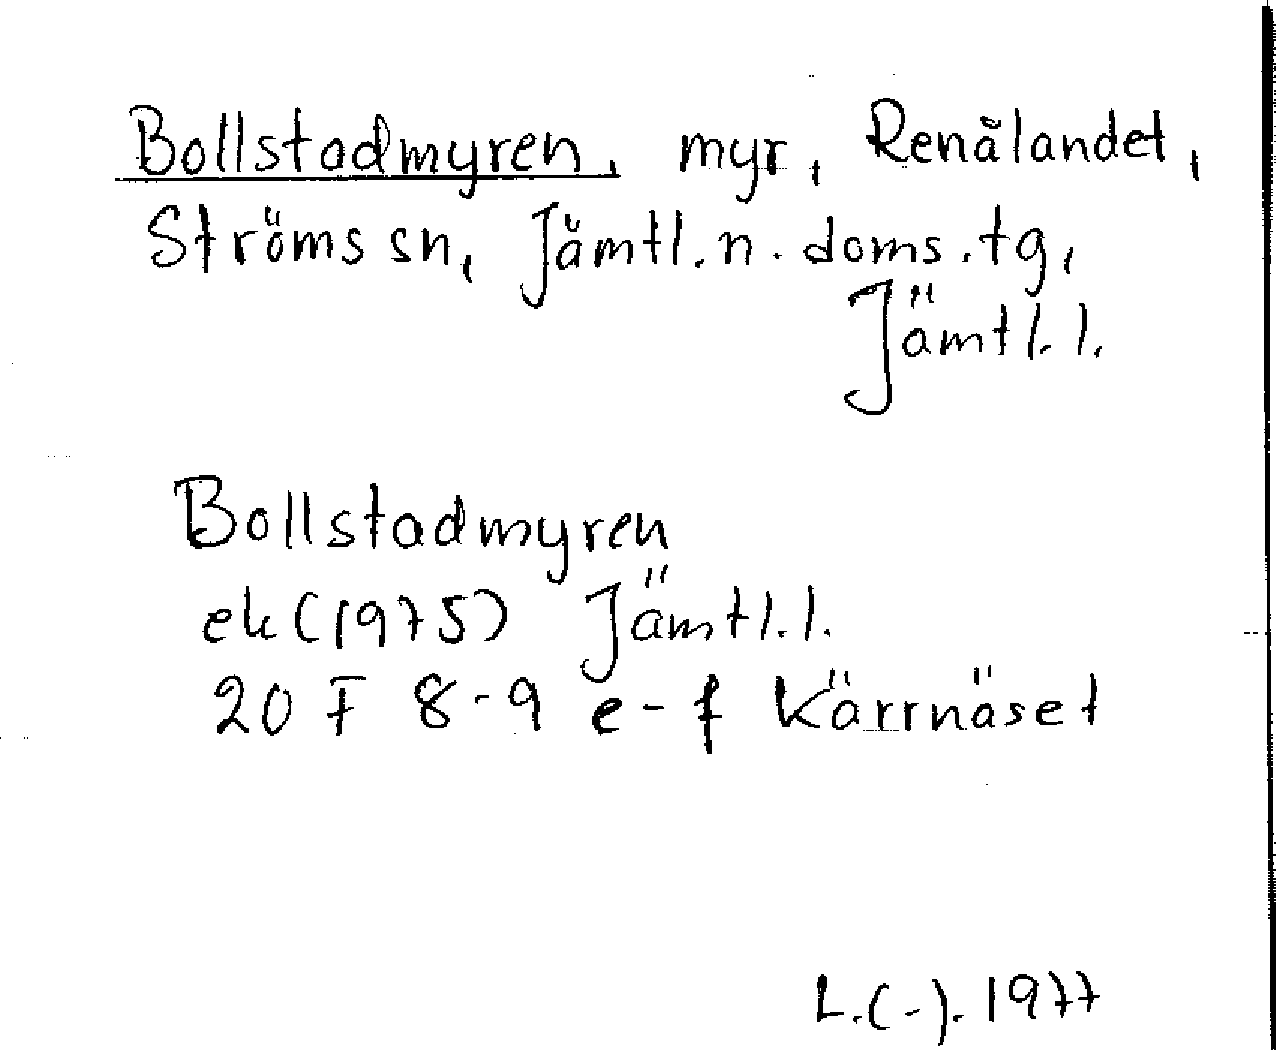 Bollstadmyren, myr, Renålandet,
Ströms sn, Jämtl. n. doms. tg,
Jämtl. l.
Bollstadmyren
ek (1975) Jämtl. l.
20 F 8-9 e-f Kärrnäset
L.(-). 1977